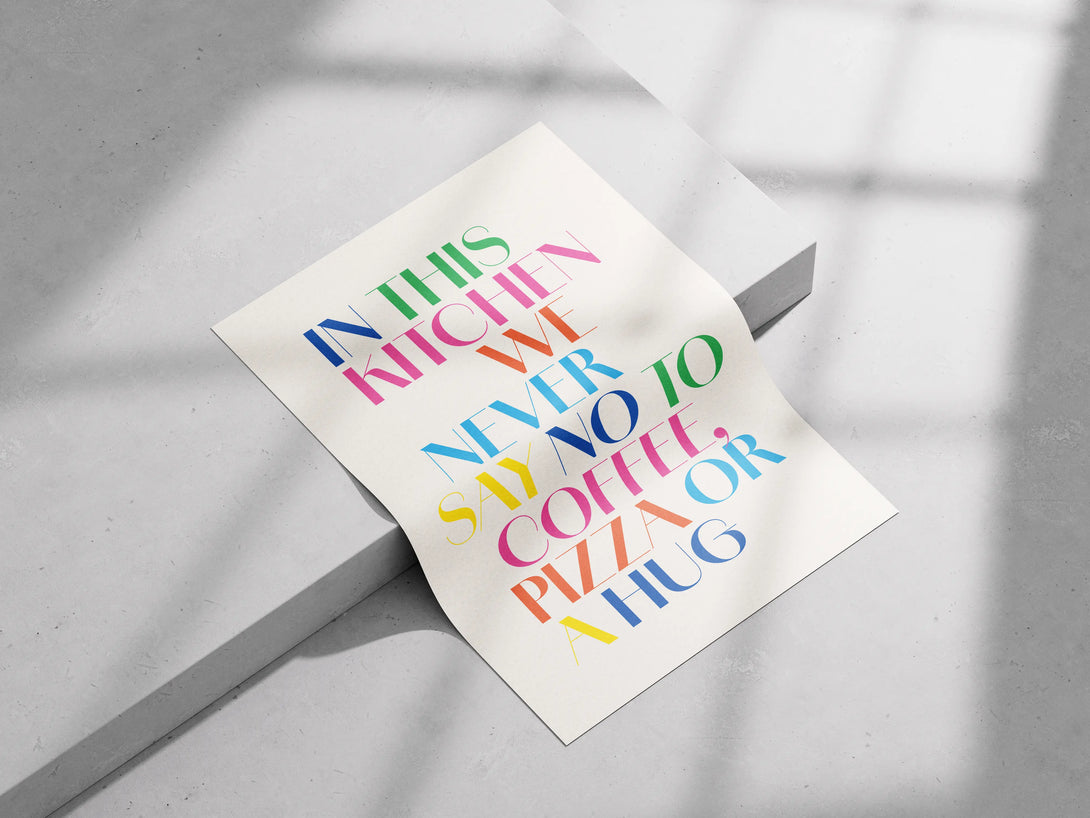 IN THIS
KITCHEN
WE
NEVER
SAY NO TO
COFFEE,
PIZZA OR
A HUG